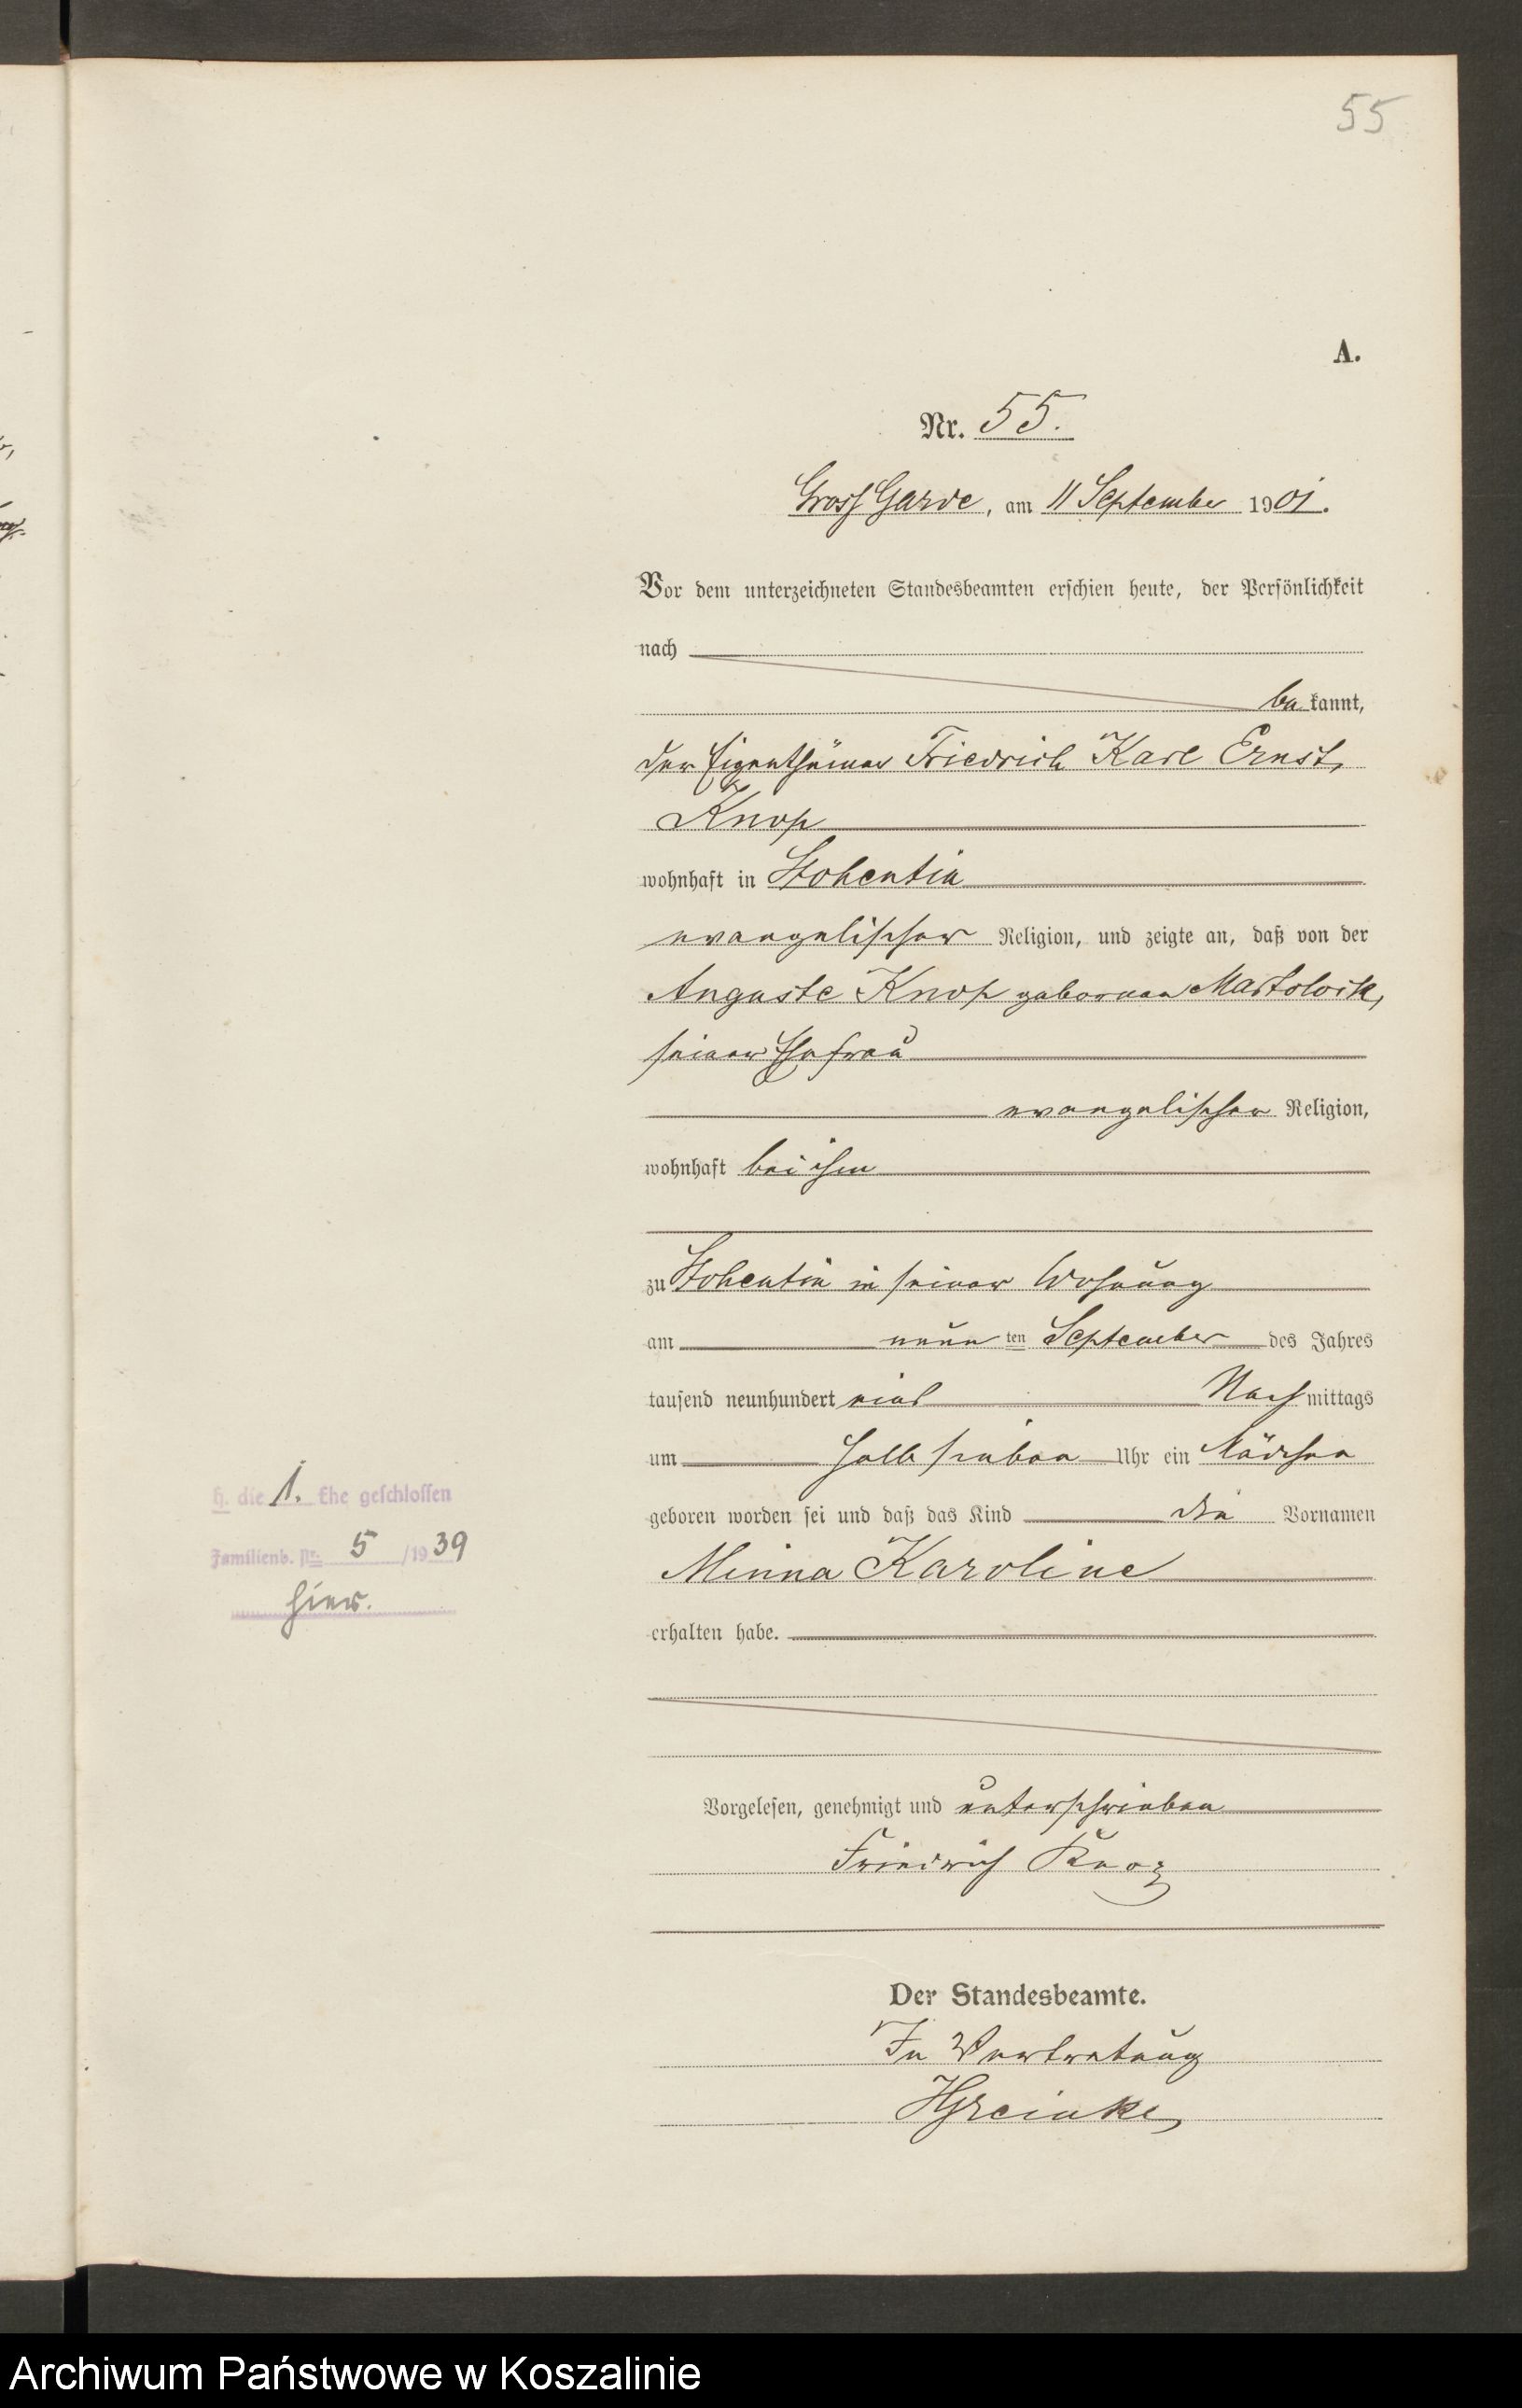 55
A.
Nr. 55.
Gross Garde, am 11 September 1901.
Vor dem unterzeichneten Standesbeamten erschien heute, der Persönlichkeit
nach
bekannt,
der Eigenthümer Friedrich Karl Ernst
Knop
wohnhaft in Stohentin
evangelischer Religion, und zeigte an, daß von der
Auguste Knop geborenen
seiner Ehefrau
evangelischer Religion,
wohnhaft bei ihm
zu Stohentin in seiner Wohnung
am neunten September des Jahres
tausend neunhundert eins Nachmittags
um halb sieben Uhr ein Mädchen
geboren worden sei und daß das Kind die Vornamen
Minna Karoline
erhalten habe.
Vorgelesen, genehmigt und unterschrieben
Friedrich Knop
Der Standesbeamte.
In Vertretung
h. die 1. Ehe geschlossen
Familienb. Nr. 5/1939
hier.
Archiwum Państwowe w Koszalinie